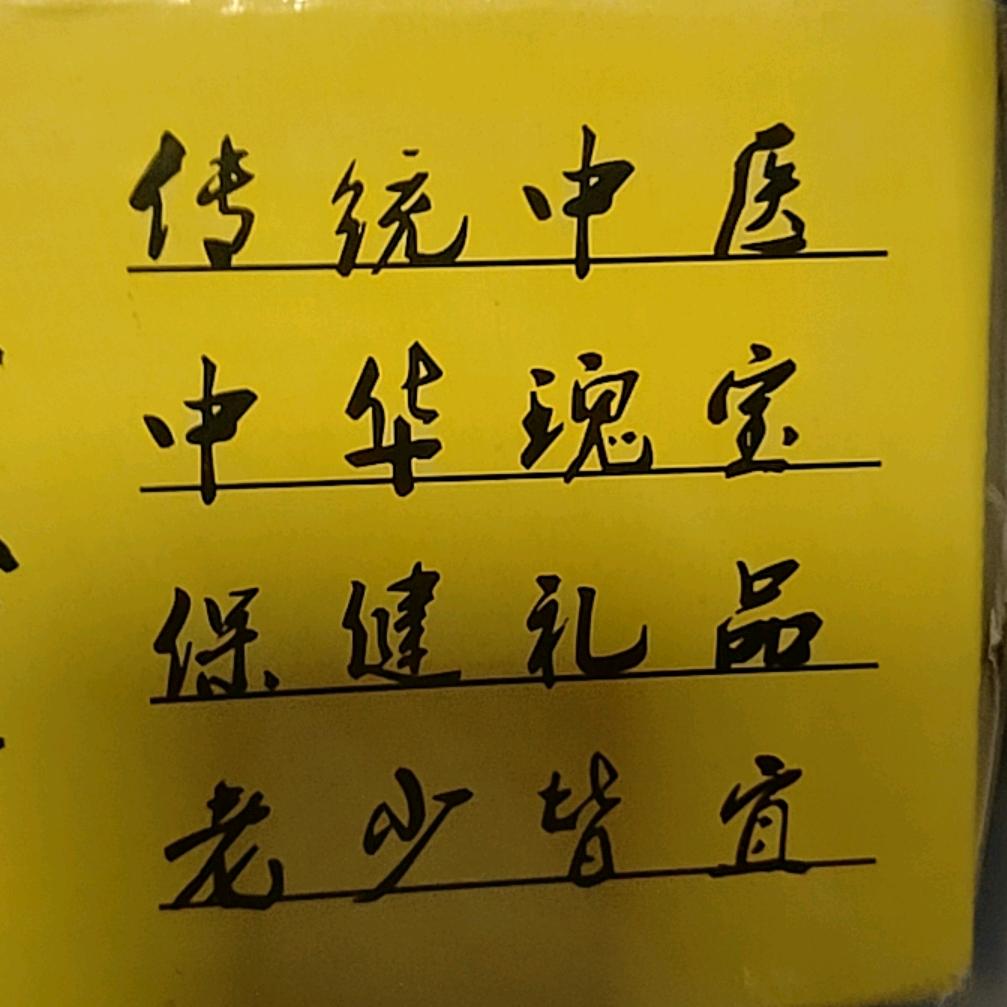 传统中医
中华瑰宝
保健礼品
老少皆宜